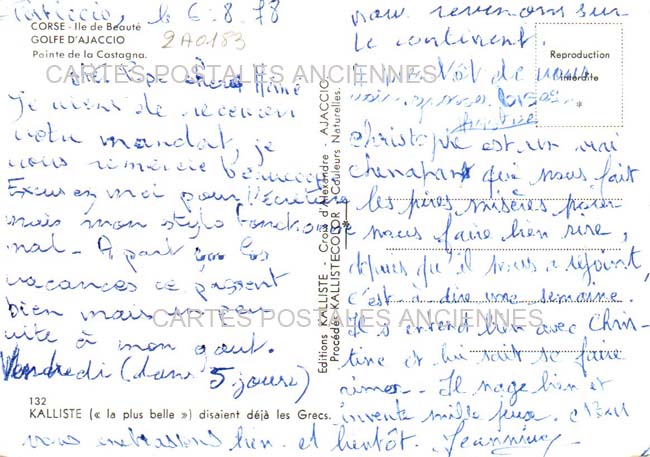 le 6.8.78
CORSE - Ile de Beauté
GOLFE D'AJACCIO
Pointe de la Castagna.
2A0183
CARTES POSTALES ANCIENNES
Je viens de recevoir
votre mandat, je
vous remercie beaucoup
Excusez moi pour l'écriture
mais mon stylo fonctionne
mal - A part ça les
vacances se passent
bien mais un peu
vite à mon gout.
Vendredi (dans 5 jours)
132
KALLISTE (« la plus belle ») disaient déjà les Grecs.
Editions KALLISTE - Cours d'Alexandre - AJACCIO
Procédé KALLISTECOLOR - Couleurs Naturelles.
nous revenons sur
le continent.
Reproduction
Interdite
*
à bientôt de vous
Christophe est un vrai
chenapan qui nous fait
les pires misères pour
nous faire bien rire,
depuis qu'il nous a rejoint,
c'est à dire une semaine.
Il s'entend bien avec Chris-
tine et lui sait se faire
aimer - Il nage bien et
invente mille jeux.
CARTES POSTALES ANCIENNES
vous embrassons bien et bientôt.